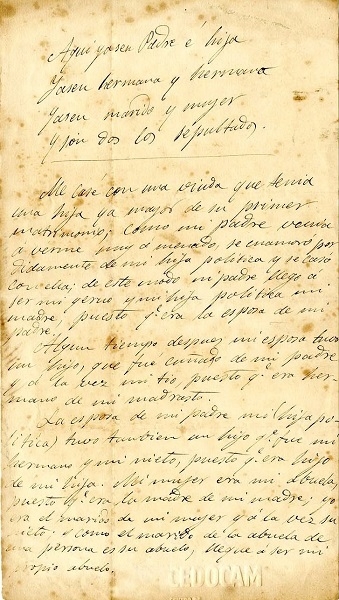 Aqui yasen Padre é hija
Yasen hermana y hermano
Yasen marido y mujer
Y son dos los sepultados.
Me casé con una viuda que tenia
una hija ya mayor de su primer
matrimonio; Como mi padre venia
a verme muy a menudo, se enamoró per
didamente de mi hija politica y se casó
con ella; de este modo mi padre llegó á
ser mi yerno y mi hija politica mi
madre, puesto q.e era la esposa de mi
padre.
Algun tiempo despues mi esposa tuvo
un hijo, que fué cuñado de mi padre
y á la vez mi tio, puesto q.e era her
mano de mi madrasta.
La esposa de mi padre mi (hija po
litica) tuvo tambien un hijo q.e fue mi
hermano y mi nieto, puesto q.e era hijo
de mi hija. Mi mujer era mi abuela,
puesto q.e era la madre de mi madre; yo
era el marido de mi mujer y á la vez su
nieto; y como el marido de la abuela de
una persona es su abuelo, llegué á ser mi
propio abuelo.
CEDOCAM